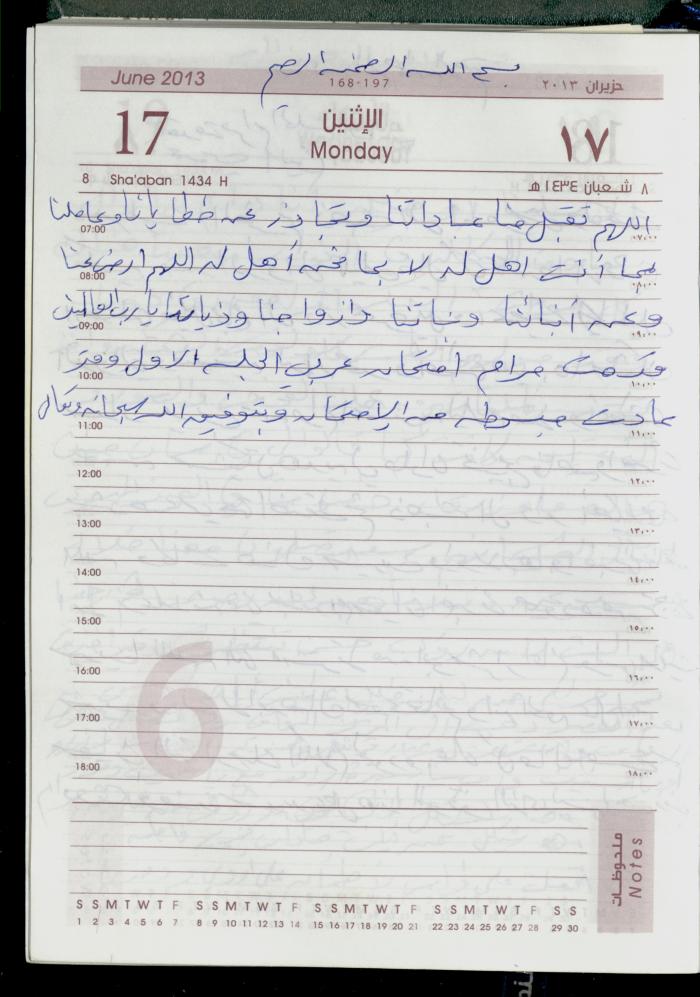 بسم الله الرحمن الرحيم
June 2013
168-197
حزيران ٢٠١٣
17
الإثنين
Monday
١٧
8 Sha'aban 1434 H
٨ شعبان ١٤٣٤ هـ
اللهم تقبل منا عباداتنا وتجاوز عن خطايانا وعاملنا
07:00 ٠٧,٠٠
بما أنت اهل له لا بما نحن أهل له اللهم ارض عنا
08:00 ٠٨,٠٠
وعن أبنائنا وبناتنا وازواجنا وذرياتنا يا رب العالمين
09:00 ٠٩,٠٠
قدمت مرام امتحان عربي الجلسه الاولى وقد
10:00 ١٠,٠٠
عادت مبسوطه من الإمتحان وبتوفيق الله سبحانه وتعالى
11:00 ١١,٠٠
12:00 ١٢,٠٠
13:00 ١٣,٠٠
14:00 ١٤,٠٠
15:00 ١٥,٠٠
6
16:00 ١٦,٠٠
17:00 ١٧,٠٠
18:00 ١٨,٠٠
ملحوظات
Notes
S S M T W T F S S M T W T F S S M T W T F S S M T W T F S S
1 2 3 4 5 6 7 8 9 10 11 12 13 14 15 16 17 18 19 20 21 22 23 24 25 26 27 28 29 30